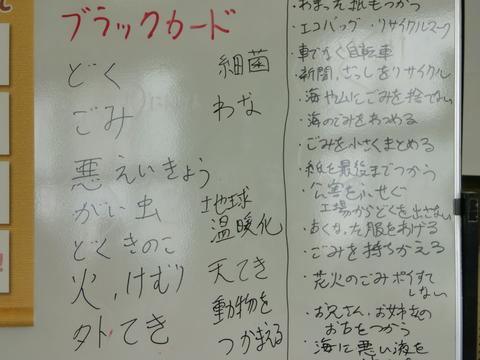 ブラックカード
どく
ごみ
悪えいきょう
がい虫
どくきのこ
火,けむり
外てき
細菌
わな
地球
温暖化
天てき
動物を
つかまえる
あまった紙もつかう
・エコバッグ・リサイクルマーク
・車でなく自転車
・新聞、ざっしをリサイクル
・海や山にごみを捨てない
・海のごみをあつめる
・ごみを小さくまとめる
・紙を最後までつかう
・公害をふせぐ
工場からどくを出さない
・あくかた服をあげる
・ごみを持ちかえる
・花火のごみポイすて
しない
・お兄さん、お姉さんの
おちをつかう
・海に悪い液を